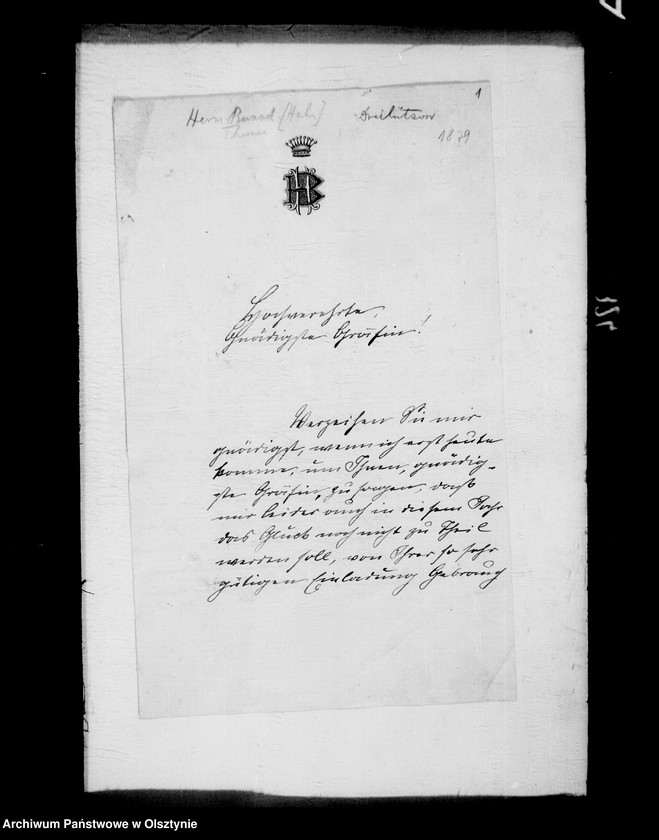 1
Dreilützow
1879
HB
Hochverehrte,
Gnädigste Gräfin!
Verzeihen Sie mir
gnädigst, wenn ich erst heute
komme, um Ihnen, gnädig-
ste Gräfin, zu sagen, daß
mir leider auch in diesem Jahr
das Glück noch nicht zu Theil
werden soll, von Ihrer so sehr
gütigen Einladung Gebrauch
124
Archiwum Państwowe w Olsztynie